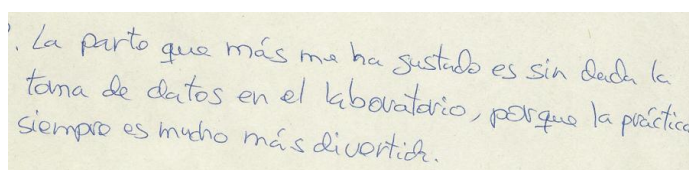 . La parte que más me ha gustado es sin duda la
toma de datos en el laboratorio, porque la práctica
siempre es mucho más divertida.